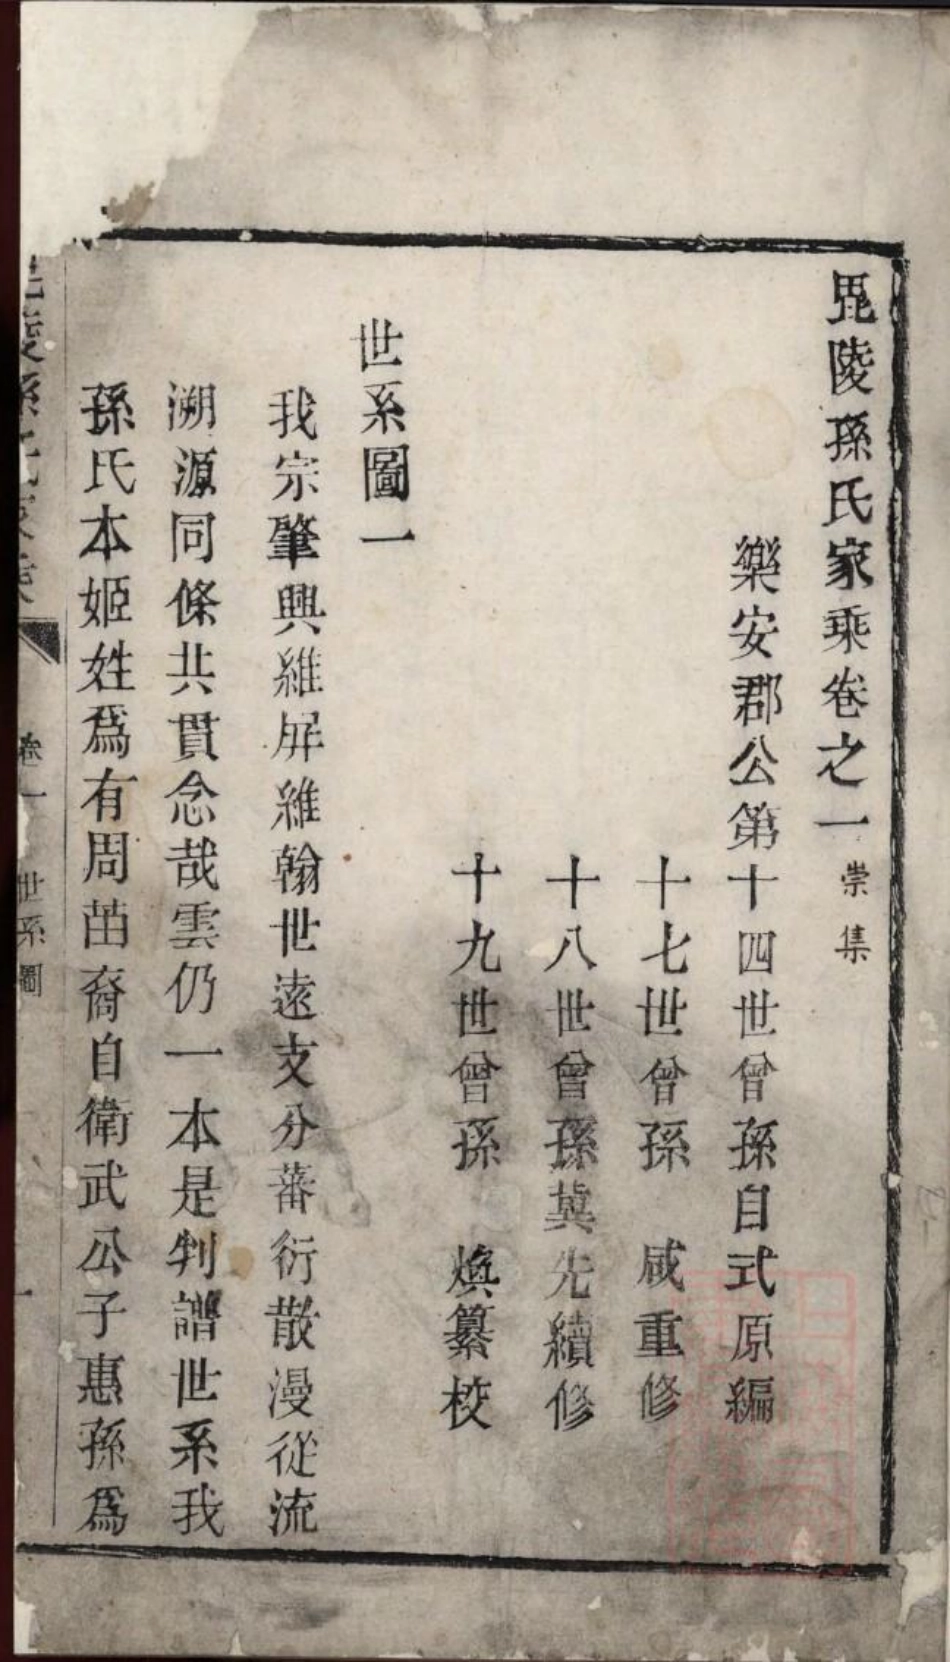 毘陵孫氏家乘卷之一 崇集
樂安郡公第十四世曾孫自式原編
十七世曾孫 咸重修
十八世曾孫蓂先續修
十九世曾孫 煥纂校
世系圖一
我宗肇興維屏維翰世遠支分蕃衍散漫從流
溯源同條共貫念哉雲仍一本是判譜世系我
孫氏本姬姓爲有周苗裔自衛武公子惠孫爲
毘陵孫氏家乘 卷一 世系圖 一